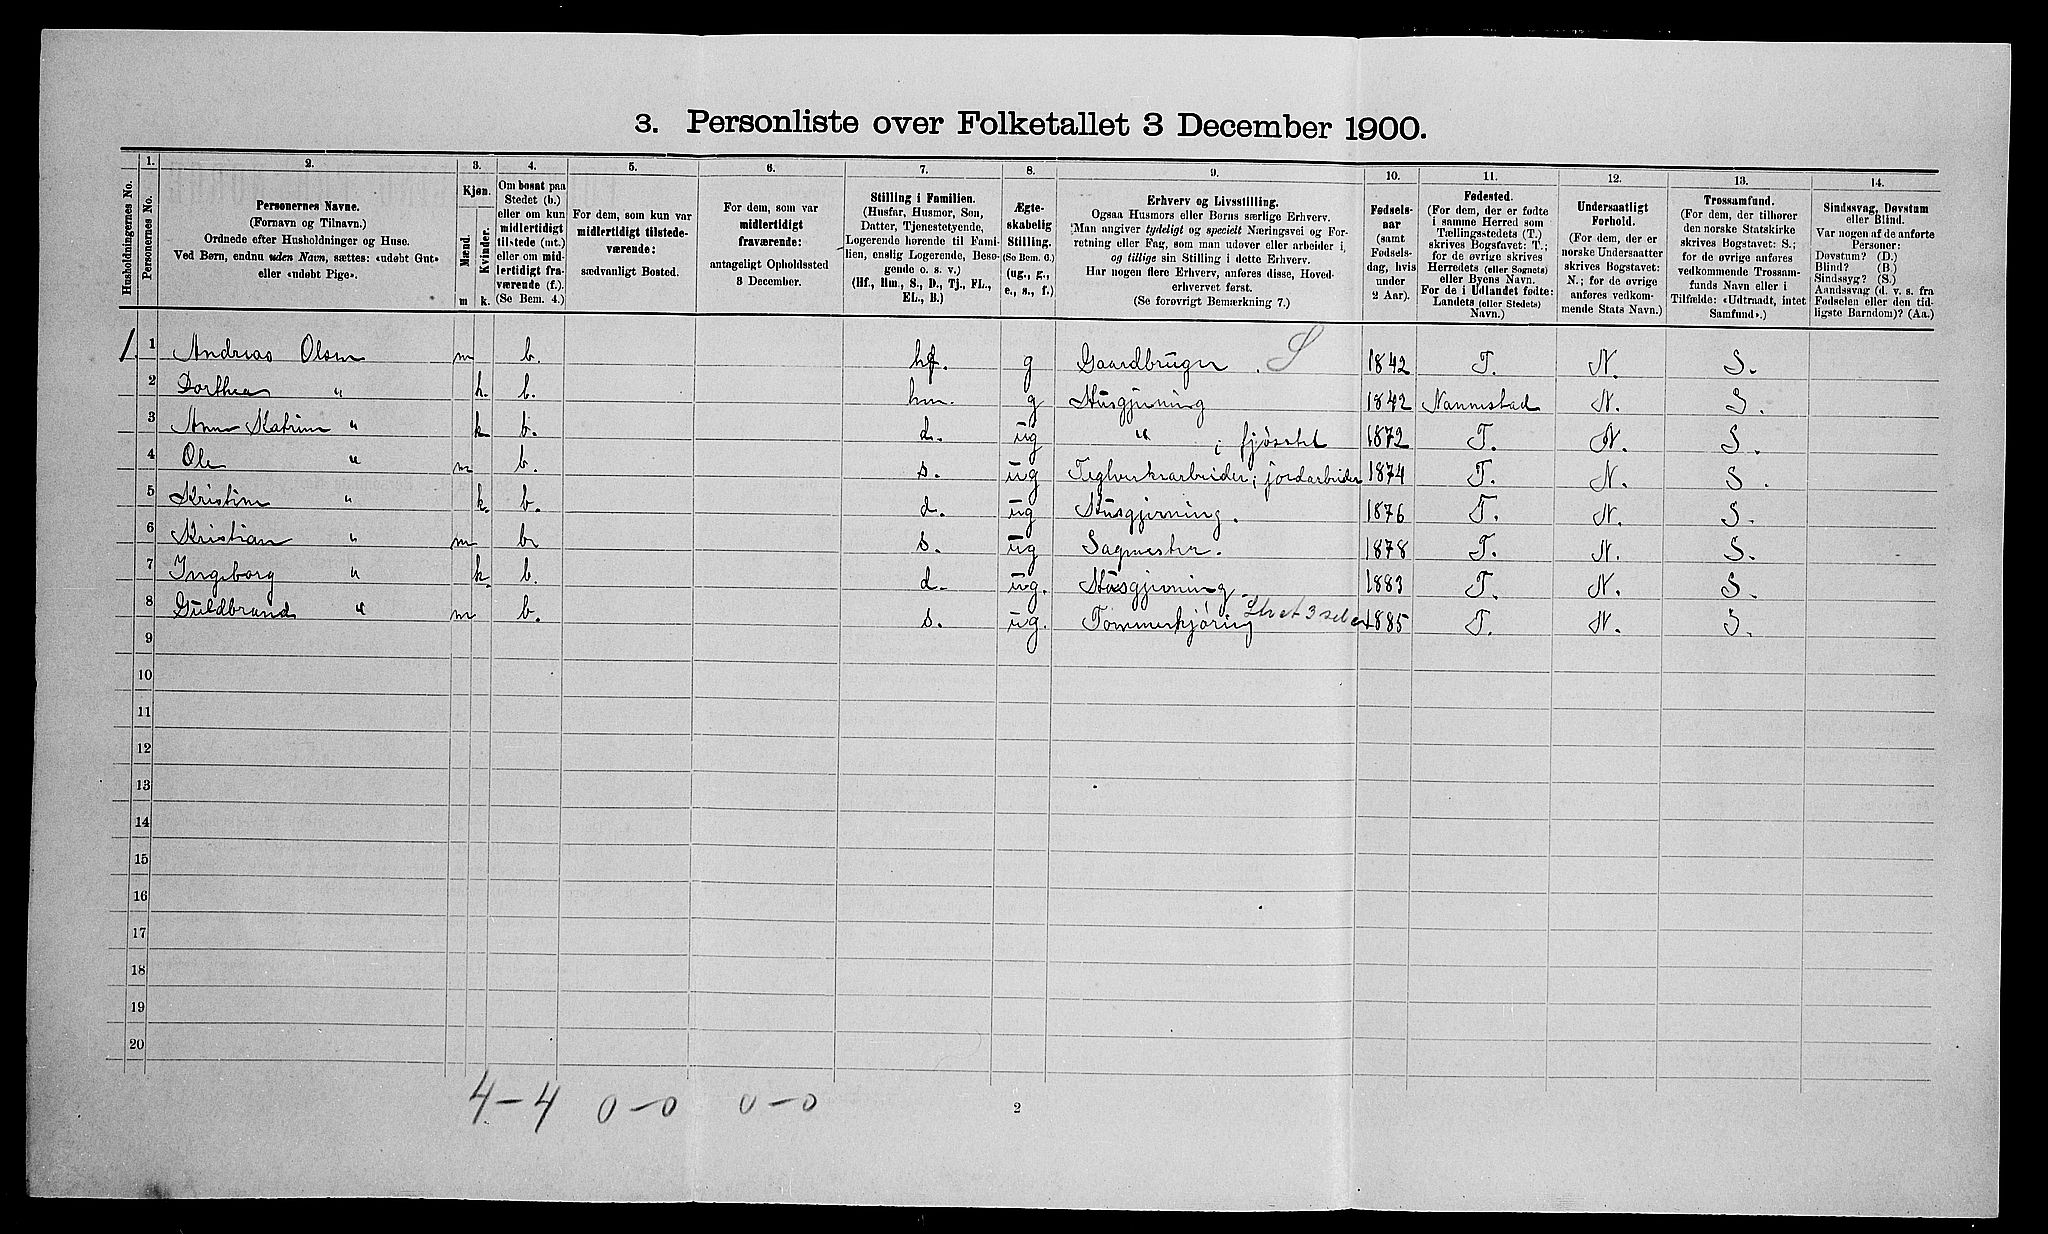 3. Personliste over Folketallet 3 December 1900.
Husholdningernes No.
1. Personernes No.
2. Personernes Navne.
(Fornavn og Tilnavn.)
Ordnede efter Husholdninger og Huse.
Ved Børn, endnu uden Navn, sættes: «udøbt Gut»
eller «udøbt Pige».
3. Kjøn.
Mænd. Kvinder.
m k.
4. Om bosat paa
Stedet (b.)
eller om kun
midlertidigt
tilstede (mt.)
eller om mid-
lertidigt fra-
værende (f.).
(Se Bem. 4.)
5. For dem, som kun var
midlertidigt tilstede-
værende:
sædvanligt Bosted.
6. For dem, som var
midlertidigt
fraværende:
antageligt Opholdssted
3 December.
7. Stilling i Familien.
(Husfar, Husmor, Søn,
Datter, Tjenestetyende,
Logerende hørende til Fami-
lien, enslig Logerende, Besø-
gende o. s. v.)
(Hf., Hm., S., D., Tj., FL.,
EL., B.)
8. Ægte-
skabelig
Stilling.
(Se Bem. 6.)
(ug., g.,
e., s., f.)
9. Erhverv og Livsstilling.
Ogsaa Husmors eller Børns særlige Erhverv.
Man angiver tydeligt og specielt Næringsvei og For-
retning eller Fag, som man udøver eller arbeider i,
og tillige sin Stilling i dette Erhverv.
Har nogen flere Erhverv, anføres disse, Hoved-
erhvervet først.
(Se forøvrigt Bemærkning 7.)
10. Fødsels-
aar
(samt
Fødsels-
dag, hvis
under
2 Aar).
11. Fødested.
(For dem, der er fødte
i samme Herred som
Tællingsstedets (T.)
skrives Bogstavet: T.;
for de øvrige skrives
Herredets (eller Sognets)
eller Byens Navn.
For de i Udlandet fødte:
Landets (eller Stedets)
Navn.)
12. Undersaatligt
Forhold.
(For dem, der er
norske Undersaatter
skrives Bogstavet:
N.; for de øvrige
anføres vedkom-
mende Stats Navn.)
13. Trossamfund.
(For dem, der tilhører
den norske Statskirke
skrives Bogstavet: S.;
for de øvrige anføres
vedkommende Trossam-
funds Navn eller i
Tilfælde: «Udtraadt, intet
Samfund».)
14. Sindssvag, Døvstum
eller Blind.
Var nogen af de anførte
Personer:
Døvstum? (D.)
Blind? (B.)
Sindssyg? (S.)
Aandssvag (d. v. s. fra
Fødselen eller den tid-
ligste Barndom)? (Aa.)
1. 1 Andreas Olsen m b. hf. g Gaardbruger. S 1842 T. N. S.
2 Dorthea " k. b. hm. g Husgjerning 1842 Nannestad N. S.
3 Anne Katrine " k b. d. ug " ; fjøsstel 1872 T. N. S.
4 Ole " m b. s. ug Teglverksarbeider; jordarbeider 1874 T. N. S.
5 Kristine " k. b. d. ug Husgjerning. 1876 T. N. S.
6 Kristian " m b. s. ug Sagmester. 1878 T. N. S.
7 Ingeborg " k. b. d. ug. Husgjerning. 1883 T. N. S.
8 Guldbrand " m b. s. ug. Tømmerkjøring 1885 T. N. S.
9
10
11
12
13
14
15
16
17
18
19
20
4-4 0-0 0-0
2